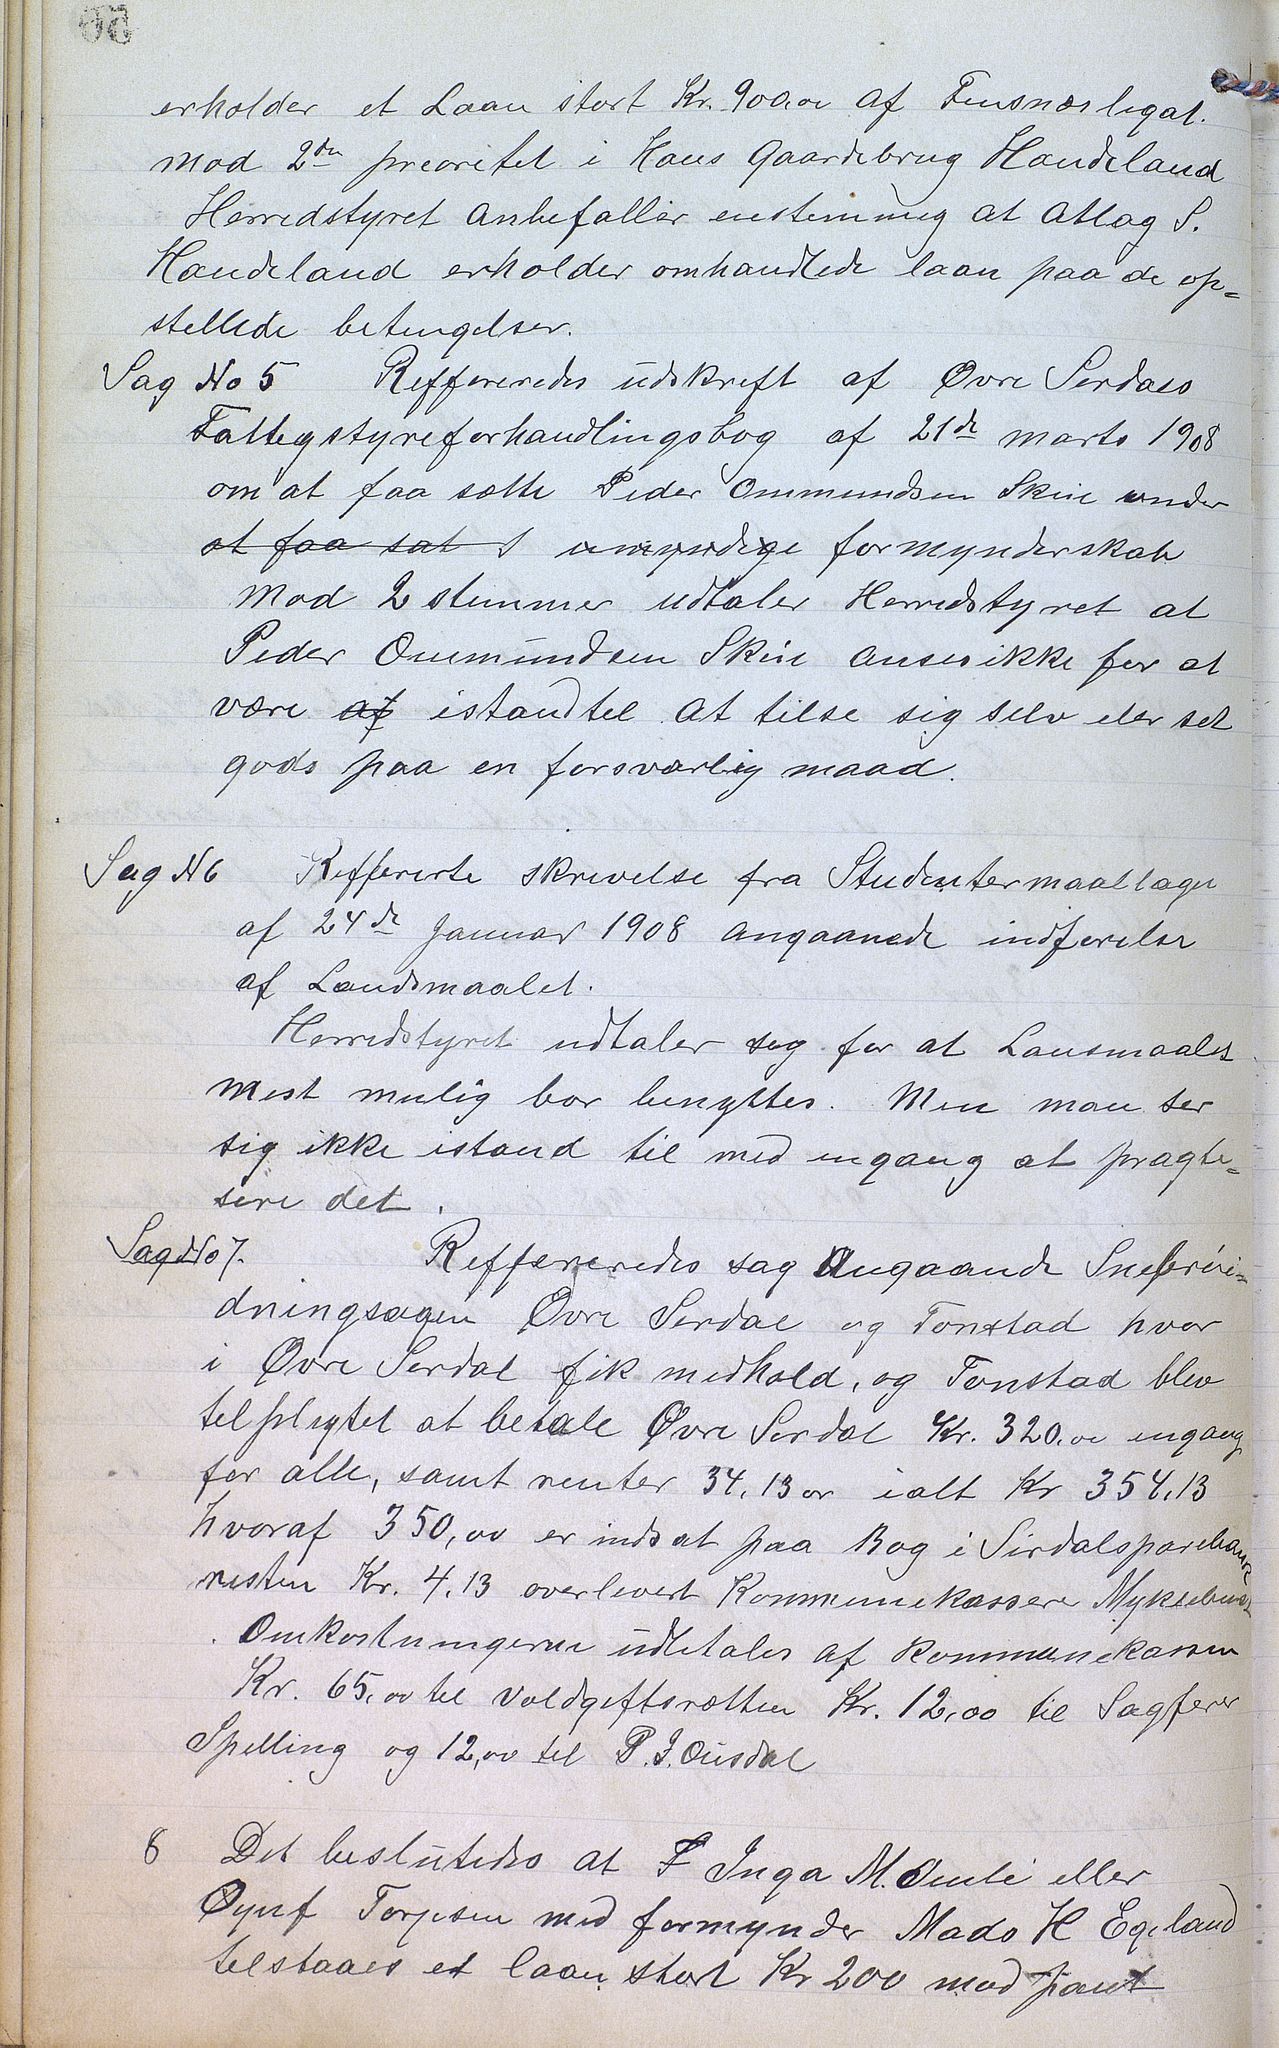 erholder et Laan stort Kr. 900,oo af Finsnæslegat.
mod 2den preoritet i Hans Gaardebrug Handeland
Herredstyret anbefaller enstemmig at Atlag S.
Handeland erholder omhandlede laan paa de op=
stellede betengelser.
Sag No 5 Reffereredes udskreft af Øvre Serdals
Fattegstyreforhandlingsbog af 21de marts 1908
om at faa sætte Peder Ommundsen Skin under
at faa sat umyndige formynderskab
Mod 2 stemmer udtaler Herredstyret at
Peder Ommundsen Skin anses ikke for at
være af istandtel at tilse sig selv eler set
gods paa en forsvarlig maad.
Sag N 6 Reffererte skrevelse fra Studentermaallagu
af 24de Januar 1908 angaanede indførelse
af Landsmaalet.
Herredstyret udtaler seg for at Lansmaalet
mest mulig bør benyttes. Men man ser
sig ikke istand til med engang at pragte=
sere det.
Sag No 7. Reffereredes sag Angaaende Snebröi=
dningsagen Øvre Serdal og Tonstad hvor
i Øvre Serdal fik medhold, og Tonstad blev
telplegtet at betale Øvre Serdal Kr. 320.oo engang
for alle, samt renter 34,13 ør ialt Kr 354,13
hvoraf 350,oo er indsat paa Bog i Sirdalsparebank
resten Kr. 4,13 overlevert Kommunekassere
Omkostningerne udbetales af Kommunekassen
Kr. 65,oo tel Voldgeftsrætten Kr. 12,oo til Sagfører
Spelling og 12,oo tel P. J. Ousdal
8 Det beslutedes at Inga M. Omli eller
Torjesen med formynder Mads H Egeland
telstaaes et laan stort Kr 200 mod pant